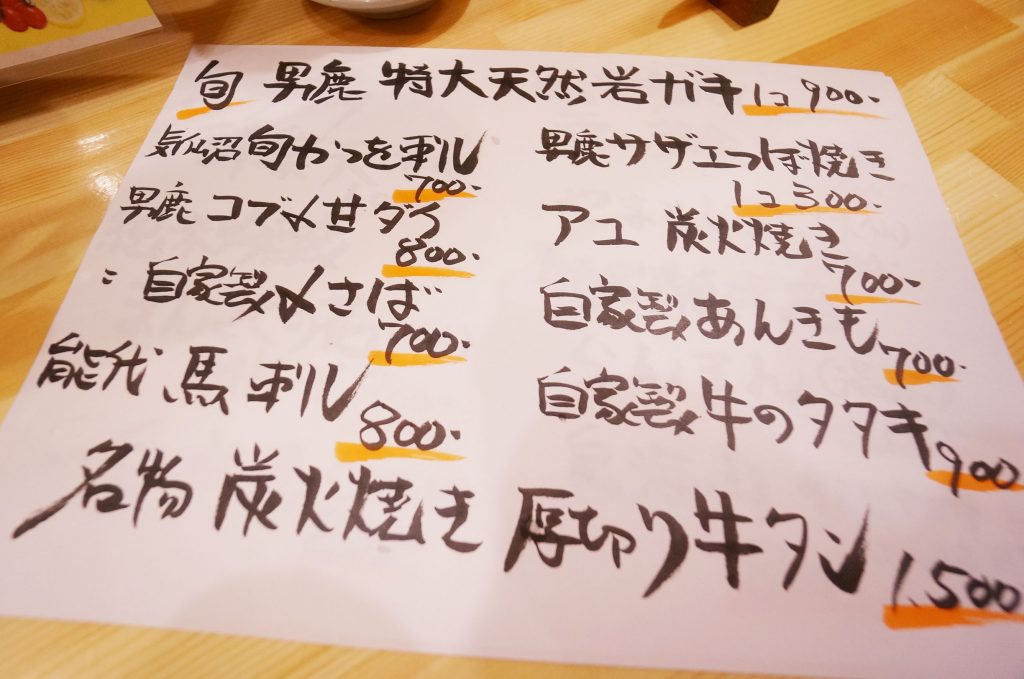 旬 男鹿 特大天然岩ガキ 1コ 900-
気仙沼 旬かつを刺し
700-
男鹿 コブ〆甘ダイ
800-
自家製〆さば
700-
能代 馬刺し
800-
男鹿サザエつぼ焼き
1コ300-
アユ 炭火焼き
700-
自家製あんきも
700-
自家製牛のタタキ
900
名物 炭火焼き 厚切り牛タン
1,500